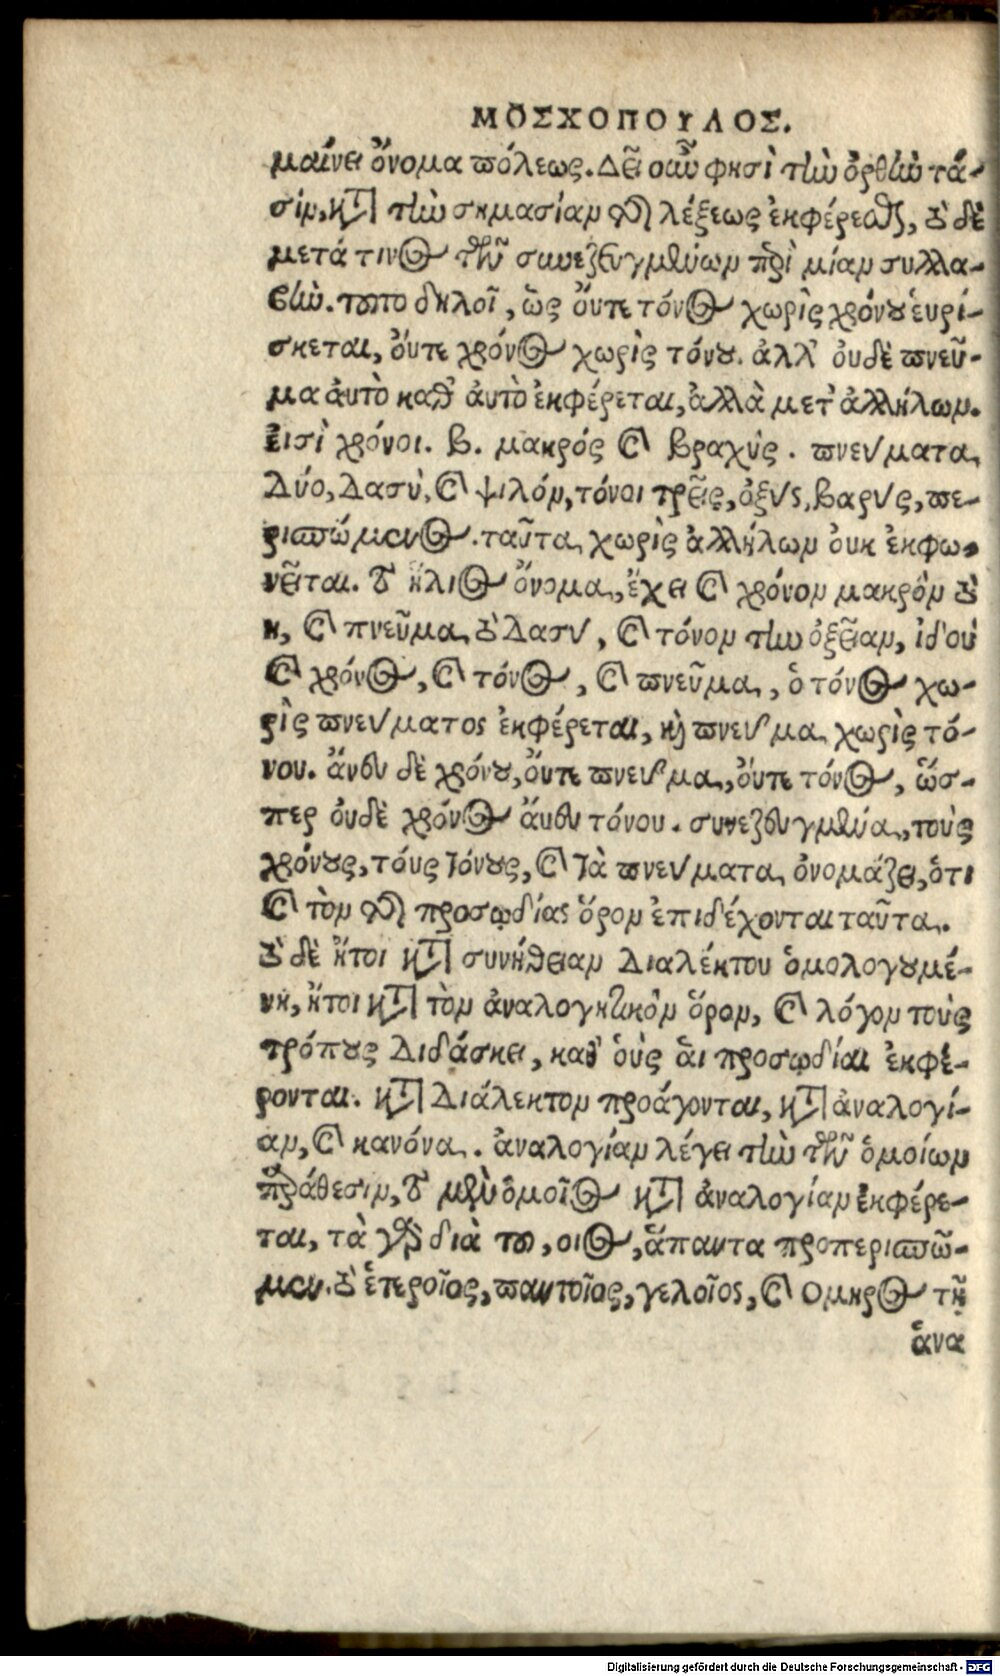 ΜΟΣΧΟΠΟΥΛΟΣ.
μαίνει ὄνομα πόλεως. Δεῖ οὖν φησὶ τὴν ὀρθὴν τά-
σιν, κατὰ τὴν σημασίαν τῆς λέξεως ἐκφέρεσθαι, τὸ δὲ
μετά τινος τῶν συνεζευγμένων περὶ μίαν συλλα-
βὴν. τοῦτο δηλοῖ, ὡς ὄυτε τόνος χωρὶς χρόνου ἑυρί-
σκεται, ὄυτε χρόνος χωρὶς τόνου. ἀλλ' ὀυδὲ πνεῦ-
μα ἀυτὸ καθ' ἀυτὸ ἐκφέρεται, ἀλλὰ μετ' ἀλλήλων.
ἐισὶ χρόνοι. β. μακρός καὶ βραχὺς. πνεύματα
Δύο, Δασὺ, καὶ ψιλόν, τόνοι τρεῖς, ὀξύς, βαρύς, πε-
ρισπώμενος. ταῦτα χωρὶς ἀλλήλων ὀυκ ἐκφω-
νεῖται. τὸ ἥλιος ὄνομα, ἔχει καὶ χρόνον μακρὸν τὸ
η, καὶ πνεῦμα τὸ Δασύ, καὶ τόνον τὴν ὀξεῖαν, ἰδού
καὶ χρόνος, καὶ τόνος, καὶ πνεῦμα, ὁ τόνος χω-
ρὶς πνεύματος ἐκφέρεται, καὶ πνεῦμα χωρὶς τό-
νου. ἄνευ δὲ χρόνου, ὄυτε πνεῦμα, ὄυτε τόνος, ὥσ-
περ ὀυδὲ χρόνος ἄνευ τόνου. συνεζευγμένα, τοὺς
χρόνους, τούς τόνους, καὶ τὰ πνεύματα ὀνομάζει, ὅτι
καὶ τὸν τῆς προσῳδίας ὅρον ἐπιδέχονται ταῦτα.
τὸ δὲ ἤτοι κατὰ συνήθειαν Διαλέκτου ὁμολογουμέ-
νη, ἤτοι κατὰ τὸν ἀναλογητικὸν ὅρον, καὶ λόγον τοὺς
τρόπους Διδάσκει, καθ' ὁὺς ἁι προσῳδίαι ἐκφέ-
ρονται. κατὰ Διάλεκτον προάγονται, κατὰ ἀναλογί-
αν, καὶ κανόνα. ἀναλογίαν λέγει τὴν τῶν ὁμοίων
παράθεσιν, τὸ μὲν ὁμοῖος κατὰ ἀναλογίαν ἐκφέρε-
ται, τὰ γὰρ διὰ του, οιος, ἅπαντα προπερισπῶ-
μεν. τὸ ἑτεροῖος, παντοῖος, γελοῖος, καὶ Ομηρος τῇ
ἀνα
Digitalisierung gefördert durch die Deutsche Forschungsgemeinschaft - DFG